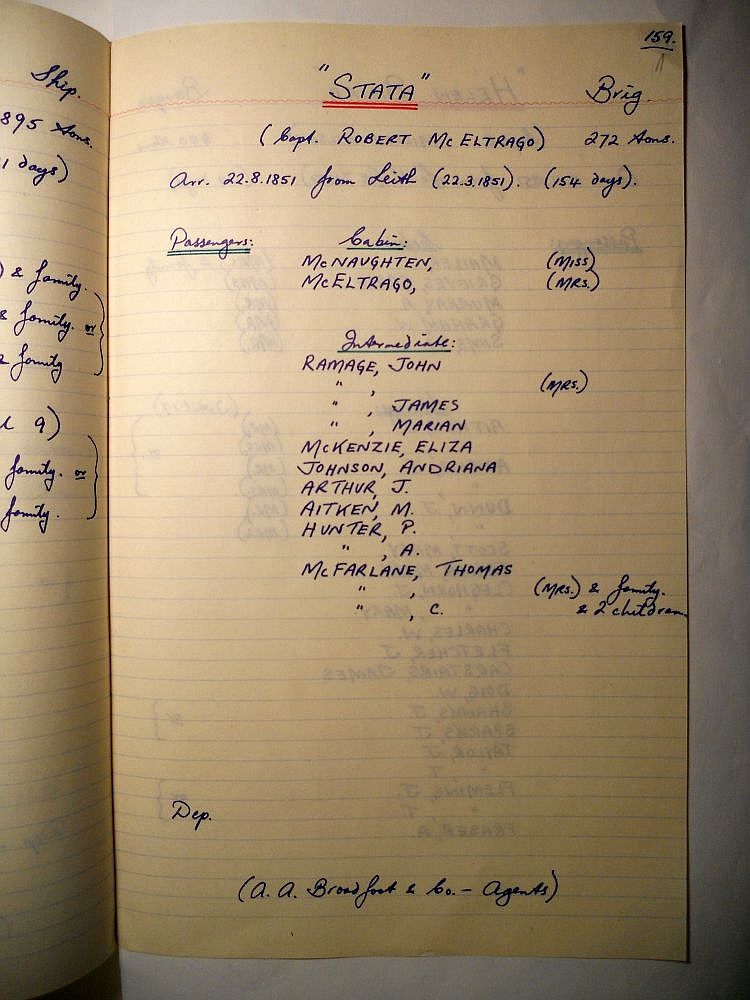 Ship.
895 tons.
1 days)
) & family.
& family. or
& family
9)
family. or
family.
159.
"STATA" Brig.
(Capt. ROBERT McELTRAGO) 272 tons.
Arr. 22.8.1851 from Leith (22.3.1851). (154 days).
Passengers: Cabin:
McNAUGHTEN, (MISS)
McELTRAGO, (MRS.)
Intermediate:
RAMAGE, JOHN
" , (MRS.)
" , JAMES
" , MARIAN
McKENZIE, ELIZA
JOHNSON, ANDRIANA
ARTHUR, J.
AITKEN, M.
HUNTER, P.
" , A.
McFARLANE, THOMAS
" , (MRS.) & family.
" , C. & 2 children.
Dep.
(A. A. Broadfoot & Co. - Agents)